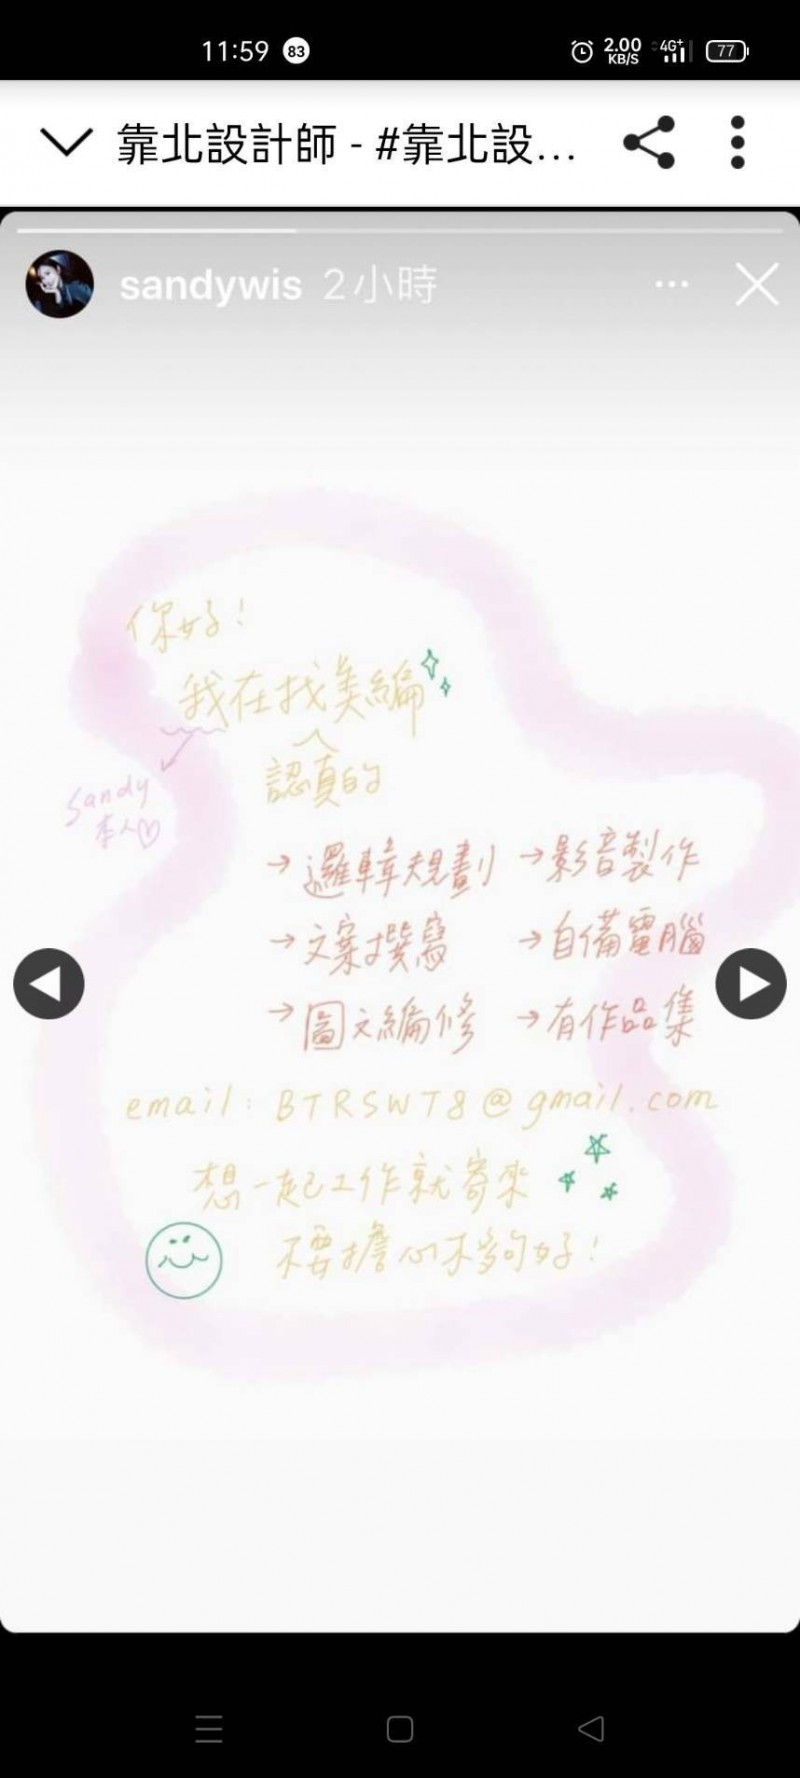 11:59 83 2.00 KB/S 4G+ 77
靠北設計師 - #靠北設...
sandywis 2小時
你好!
我在找美編
認真的
Sandy
本人
→邏輯規劃 →影音製作
→文案撰寫 →自備電腦
→圖文編修 →有作品集
email: BTRSWT8@gmail.com
想一起工作就寄來
不要擔心不夠好!